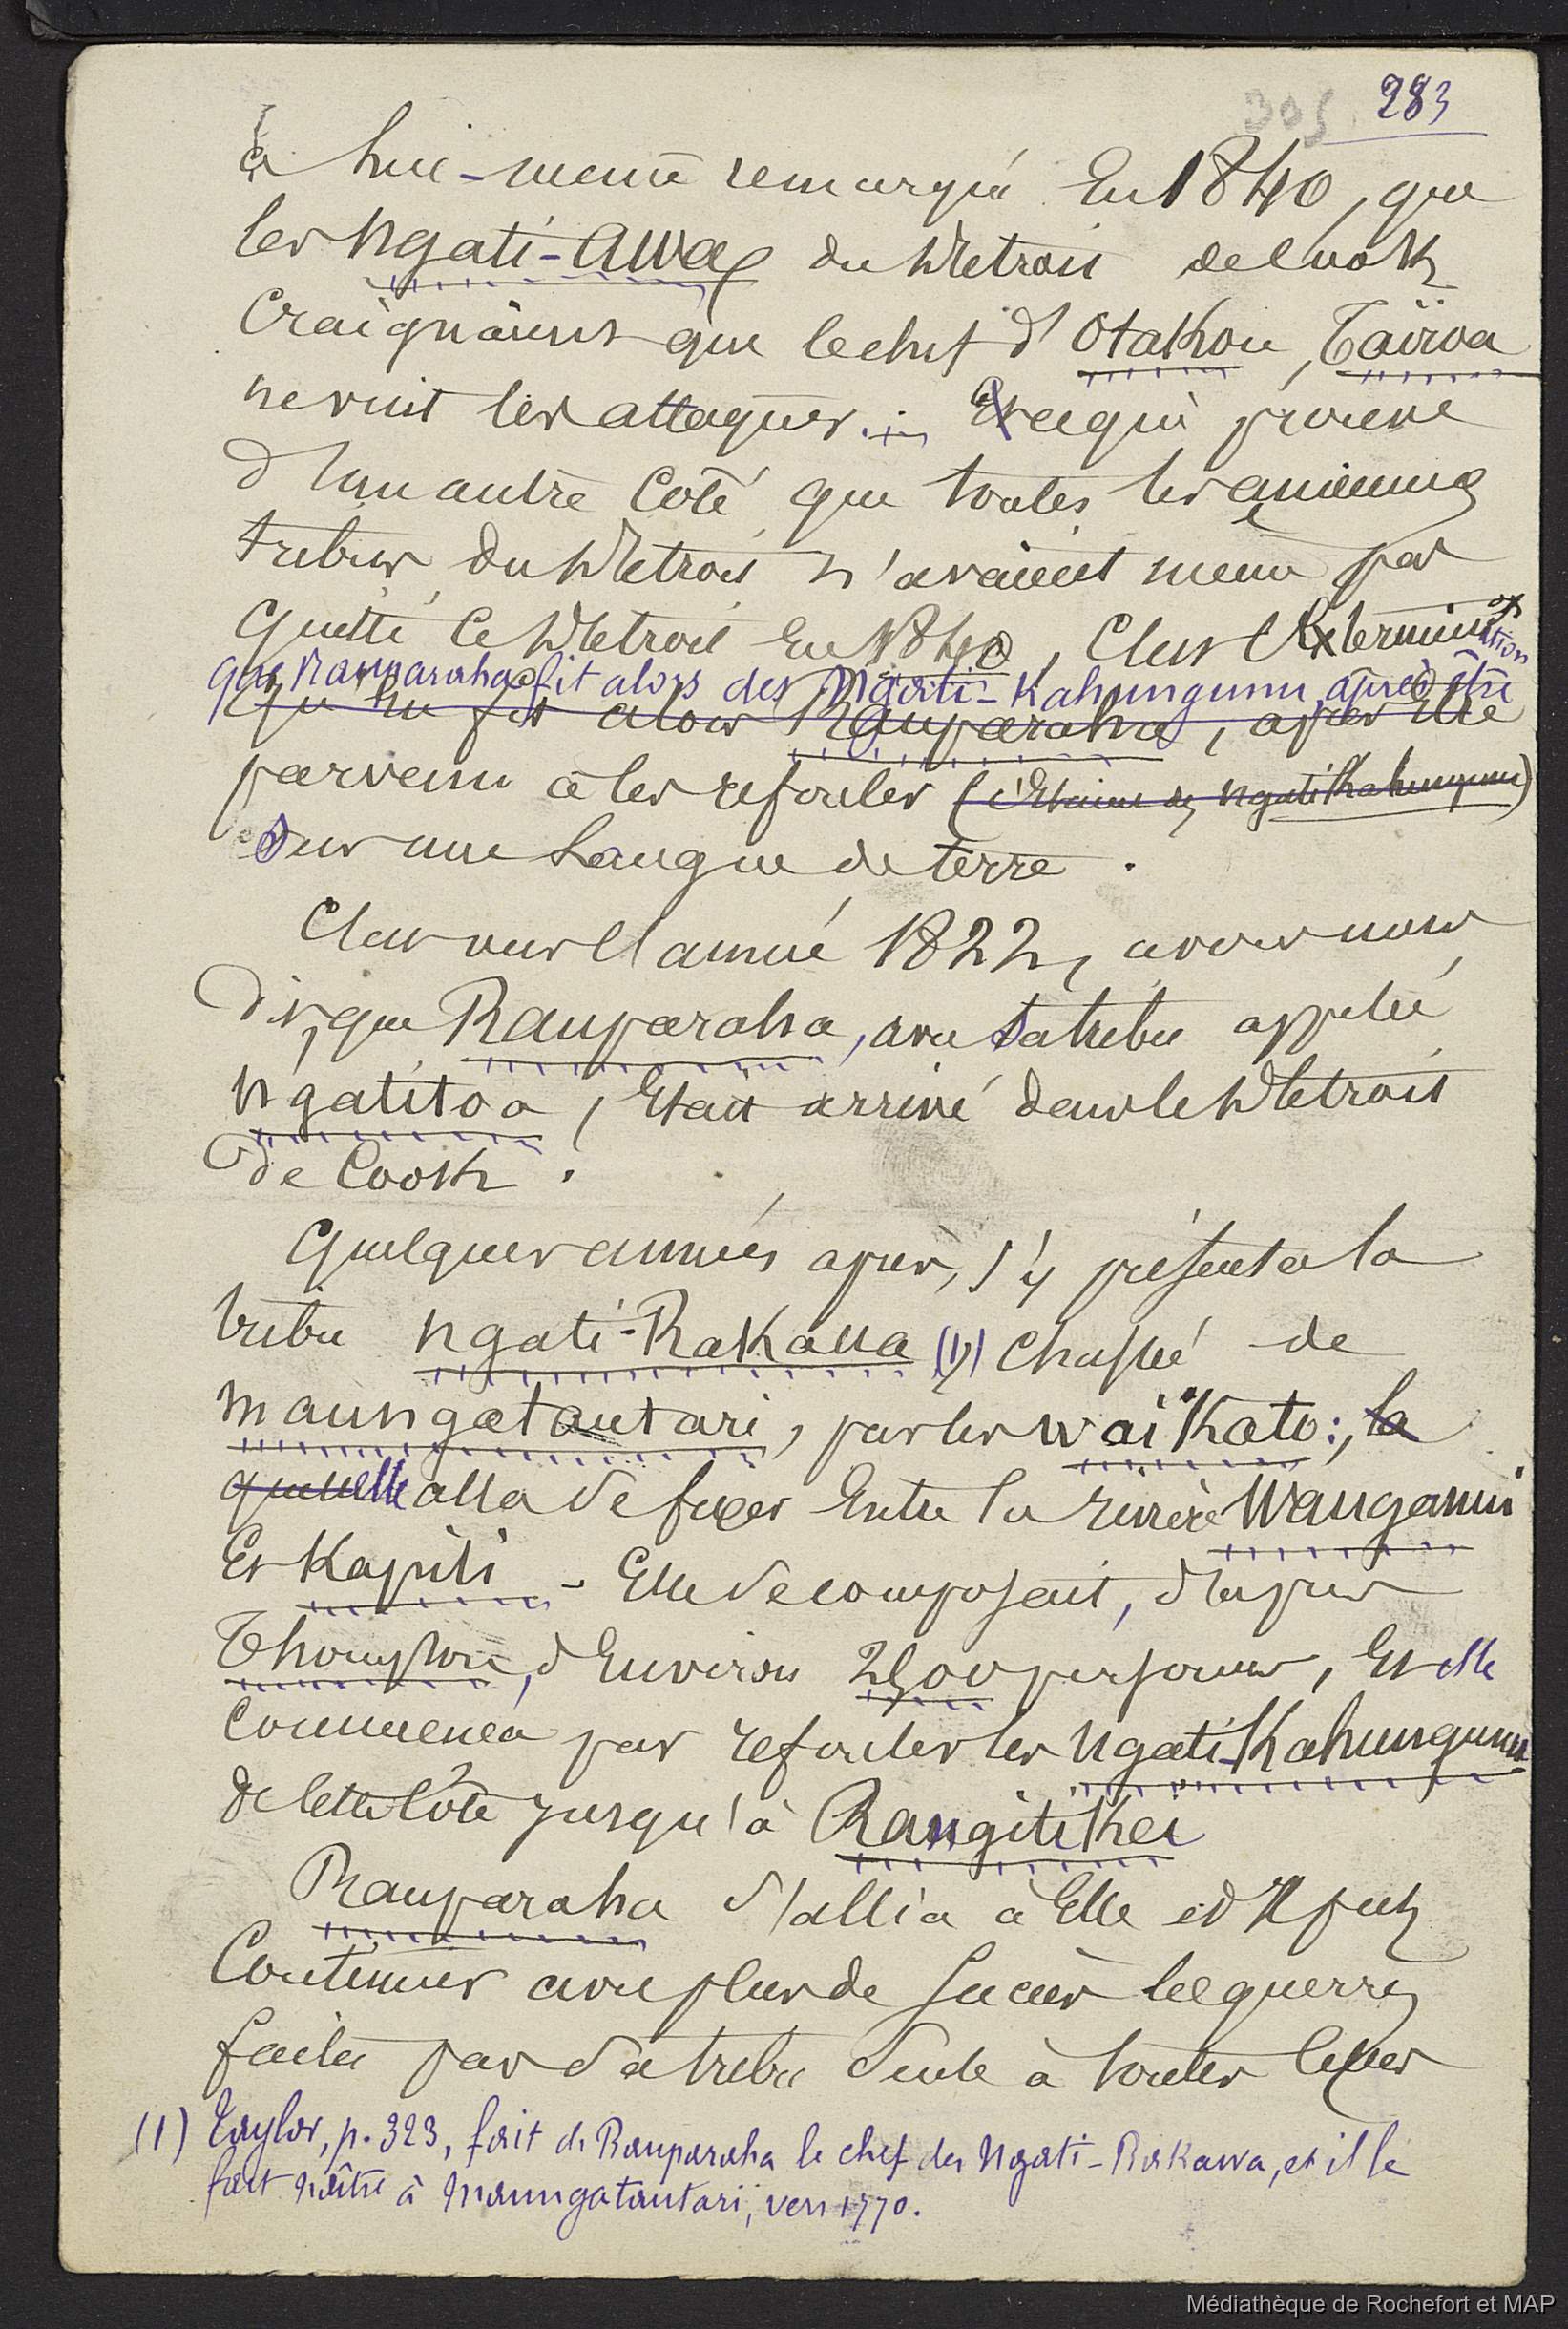 305 283
a lui-même remarqué En 1840, que
les Ngati-Awa du Détroit de Cook
Craignaient que le chef d'Otakou, Taïroa
ne vint les attaquer. ce qui prouve
d'un autre Coté que toutes les anciennes
tribus du Détroit n'avaient même pas
quitté le Détroit En 1840, l'Extermination
que Rauparaha fit alors des Ngati-Kahungunu, après être
qu'en fit alors Rauparaha, après être
parvenu à les refouler (Ngatikahungunu)
Sur une Langue de terre.
C'est vers l'année 1822, avons nous
dit, que Rauparaha, avec sa tribu appelée
Ngatitoa, Etait arrivé dans le Détroit
de Cook.
Quelques années après, s'y présenta la
tribu Ngati-Rakaua (1) chassée de
Maungatautari, par les Waikato:, la
quelle elle alla se fixer Entre la rivière Wanganui
Et Kapiti - Elle se composait, d'après
d'Environ 2500 personnes, Et elle
Commença par refouler les Ngati-Kahungunu
de cette Côte jusqu'à Rangitikei
Rauparaha s'allia à Elle et put
Continuer avec plus de succès les guerres
faites par sa tribu seule à toutes celles
(1) Taylor, p. 323, fait de Rauparaha le chef des Ngati-Rakawa, et il le
fait naître à Maungatautari, vers 1770.
Médiathèque de Rochefort et MAP